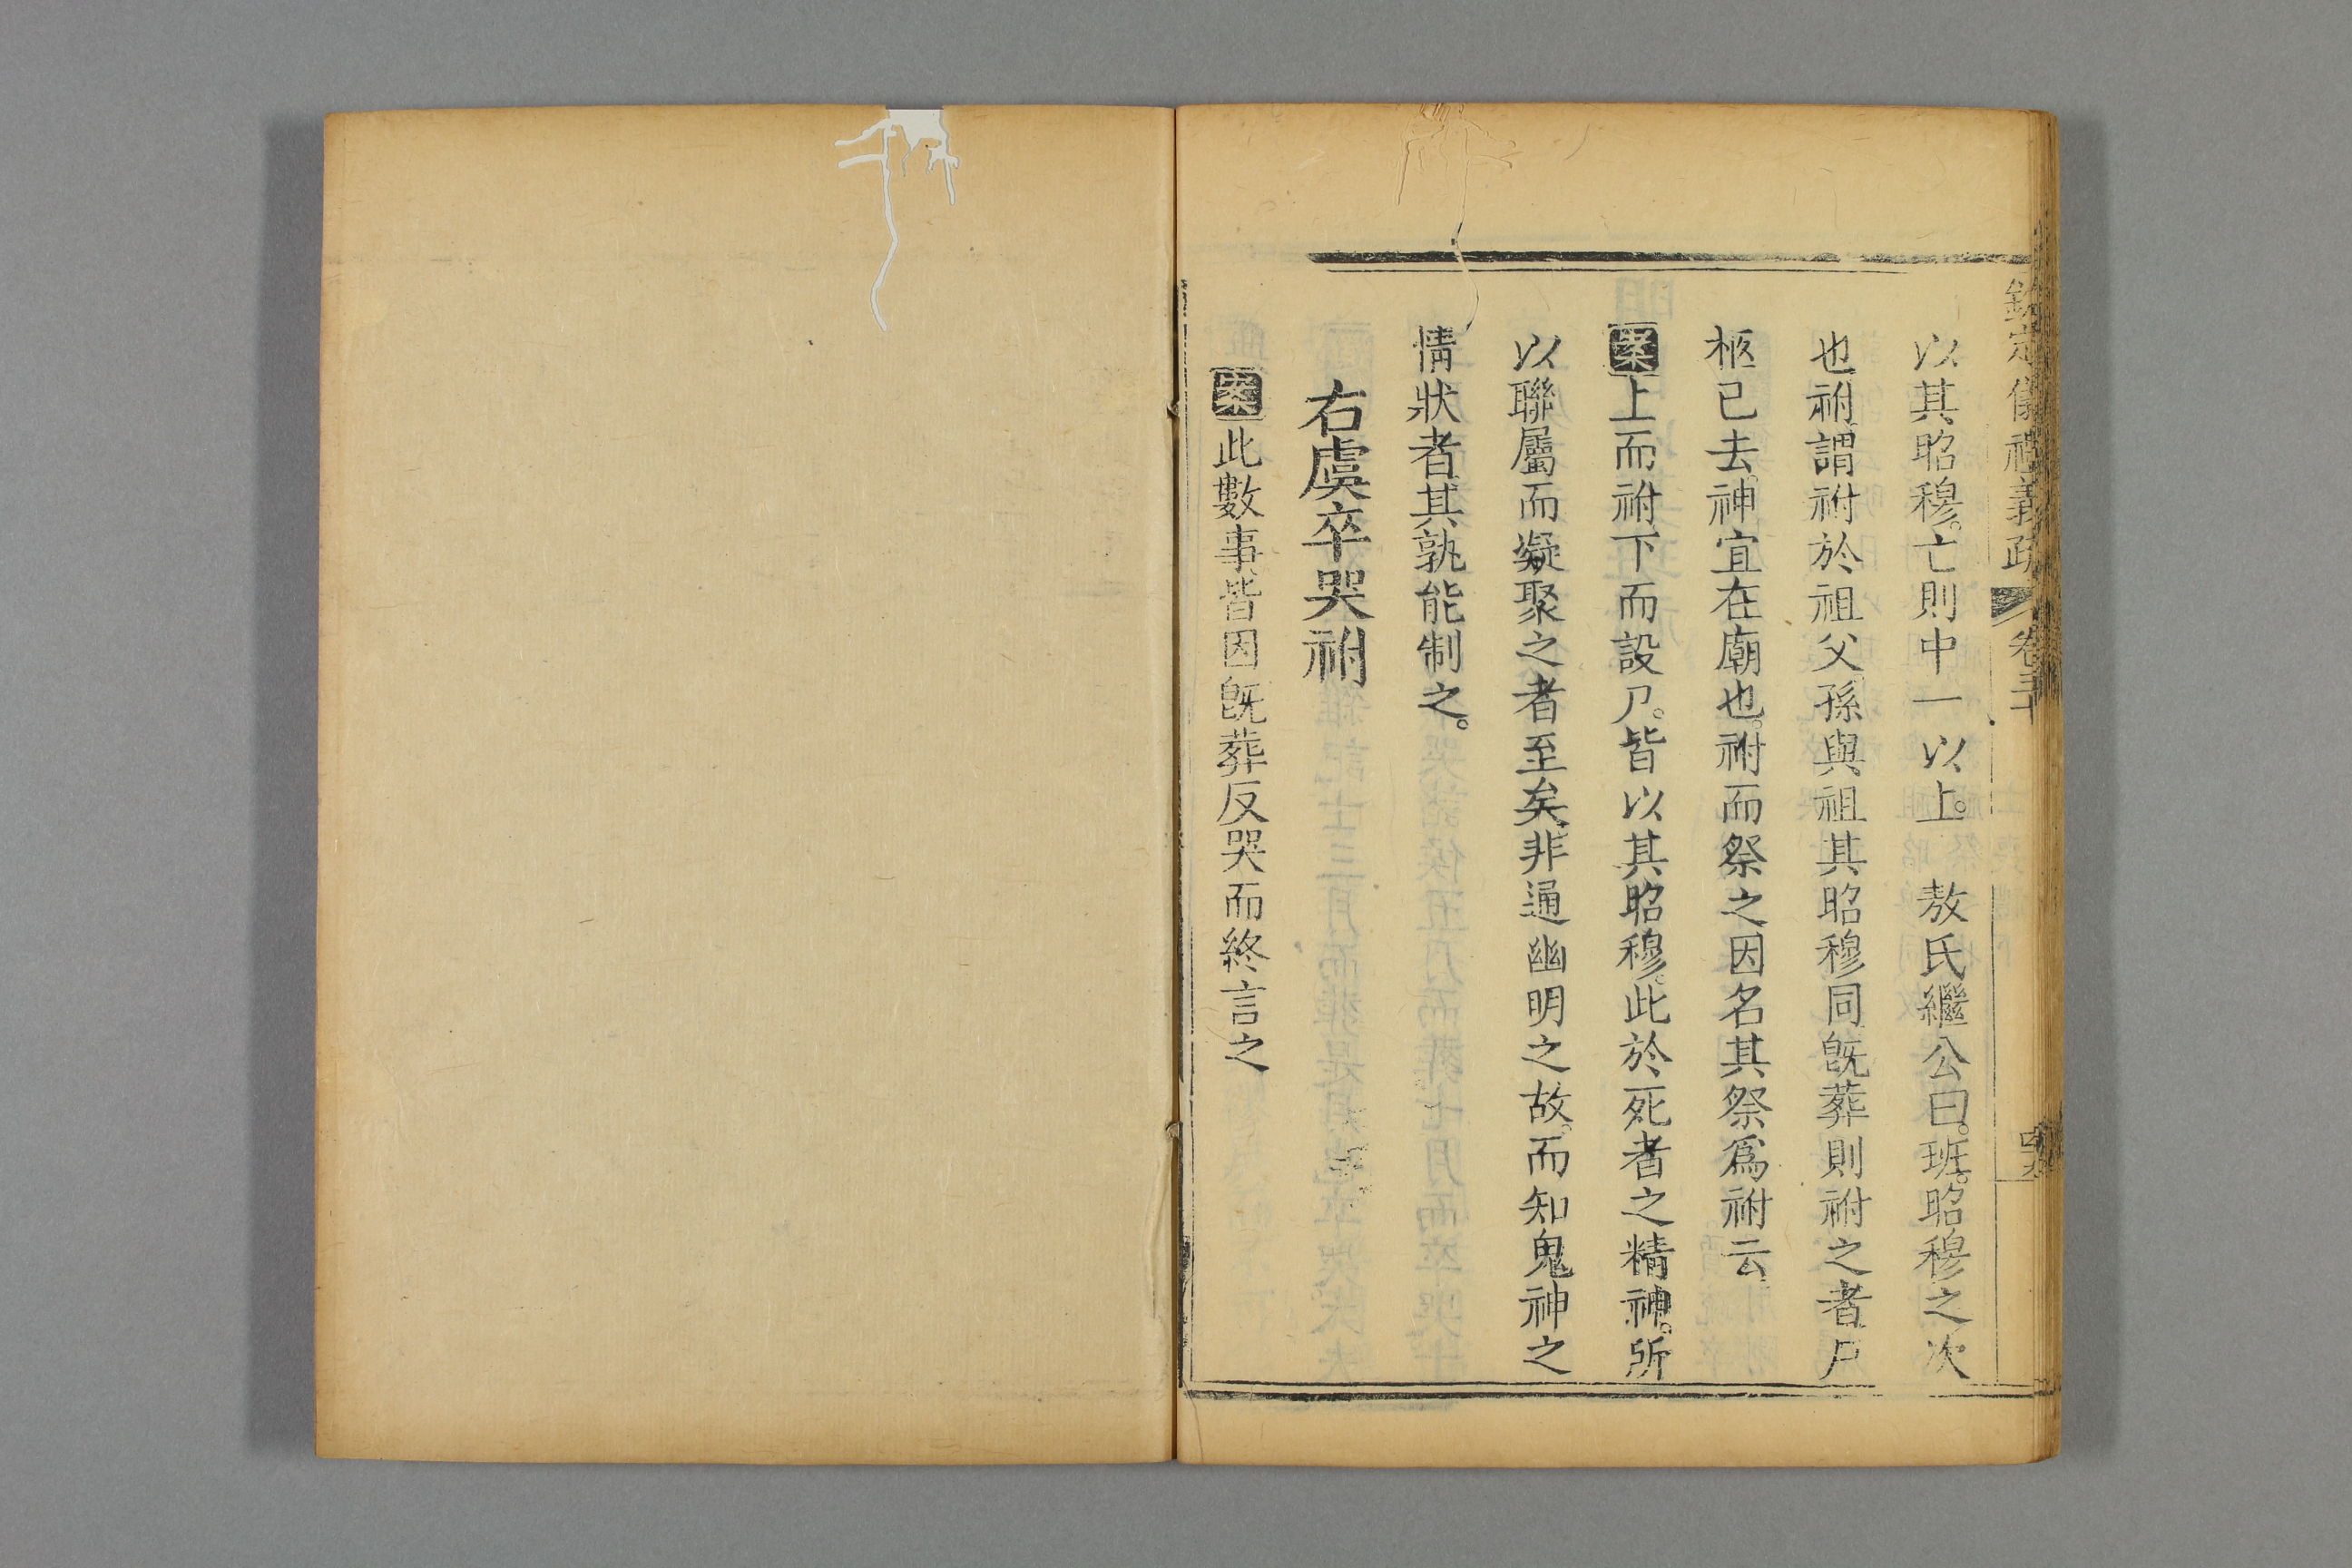 欽定儀禮義疏 卷三十
以其昭穆。亡則中一以上。 敖氏繼公曰。班。昭穆之次
也祔謂祔於祖父孫與祖其昭穆同旣葬則祔之者尸
柩已去。神宜在廟也。祔而祭之因名其祭爲祔云
案上而祔下而設尸。皆以其昭穆。此於死者之精神。所
以聯屬而凝聚之者至矣。非通幽明之故。而知鬼神之
情狀者其孰能制之。
右虞卒哭祔
案此數事皆因旣葬反哭而終言之